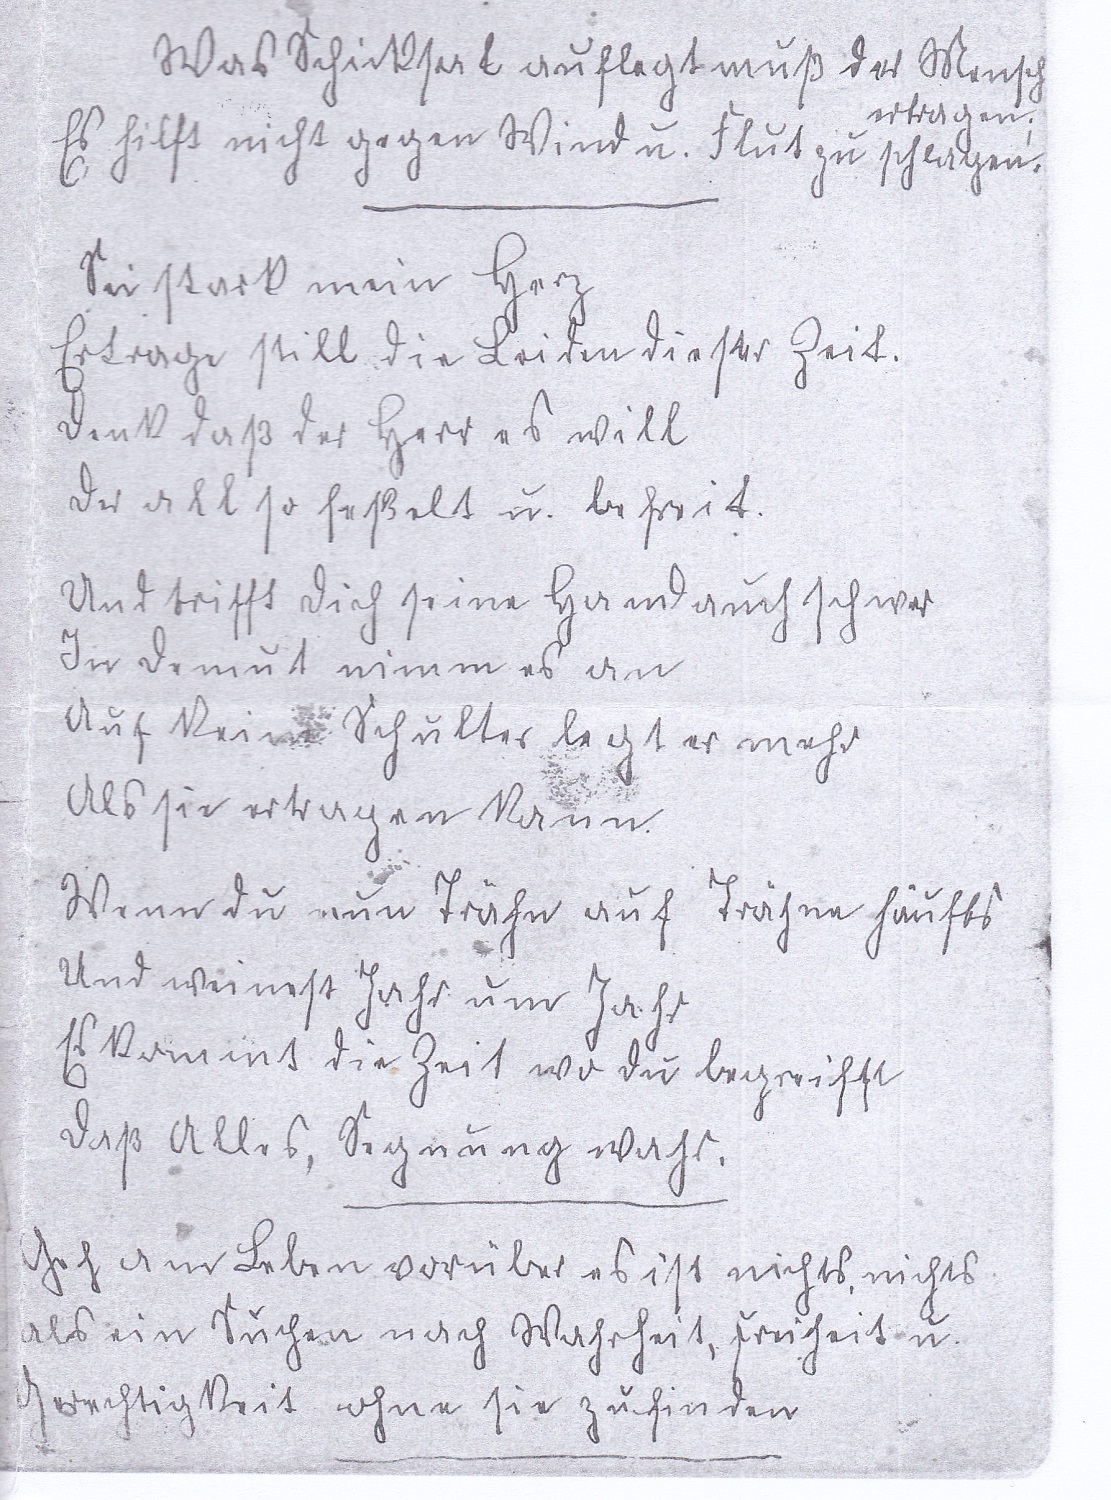 Was Schicksal auflegt muß der Mensch
ertragen;
Es hilft nicht gegen Wind u. Flut zu schlagen.
Sei stark mein Herz
Ertrage still die Leiden dieser Zeit.
Denk daß der Herr es will
Der all so feßelt u. befreit.
Und trifft Dich seine Hand auch schwer
In Demut nimm es an
Auf keine Schulter legt er mehr
Als sie ertragen kann.
Wenn du nun Trähn auf Trähne häufts
Und weinest Jahr um Jahr
Es kommt die Zeit wo du begreifft
Daß Alles, Segnung wahr.
Geh am Leben vorüber es ist nichts, nichts
als ein Suchen nach Wahrheit, Freiheit u.
Gerechtigkeit ohne sie zu finden